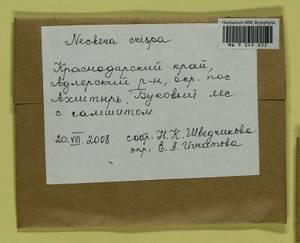 Herbarium MW, Bryophyta
MW 9 049 632
Neckera crispa
Краснодарский край,
Адлерский р-н, окр. пос.
Ахштырь. Буковый лес
с самшитом
20.VIII.2008 собр. Н.К. Шведчикова
опр. Е.А. Игнатова